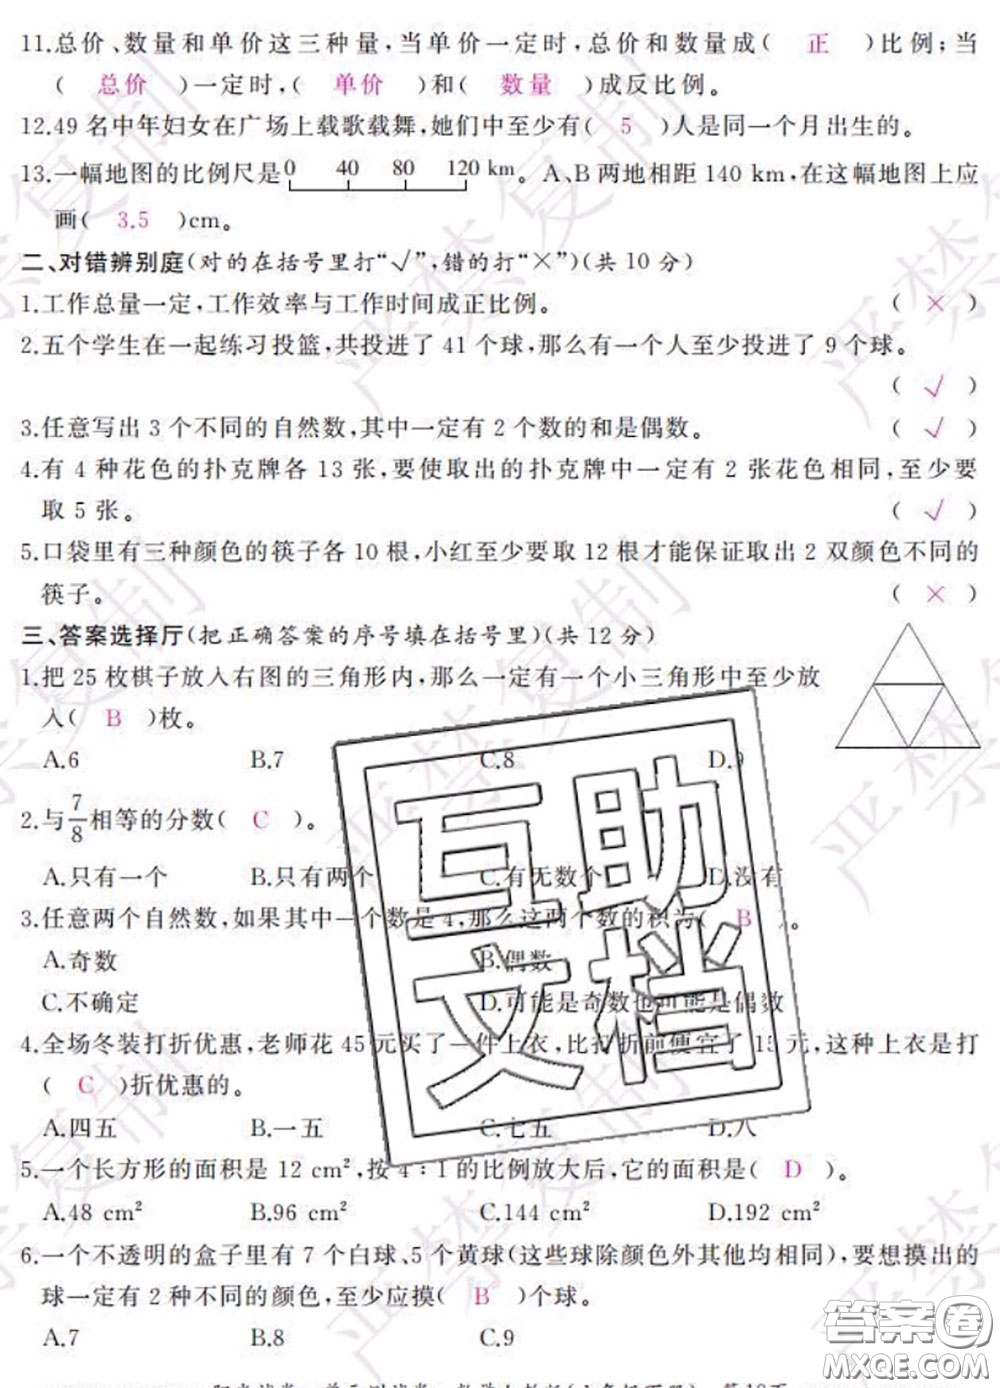 11.总价、数量和单价这三种量,当单价一定时,总价和数量成( 正 )比例;当
( 总价 )一定时,( 单价 )和( 数量 )成反比例。
12.49 名中年妇女在广场上载歌载舞,她们中至少有( 5 )人是同一个月出生的。
13.一幅地图的比例尺是 0 40 80 120 km。A、B 两地相距 140 km,在这幅地图上应
画( 3.5 )cm。
二、对错辨别庭(对的在括号里打“√”,错的打“×”)(共 10 分)
1.工作总量一定,工作效率与工作时间成正比例。 ( × )
2.五个学生在一起练习投篮,共投进了 41 个球,那么有一个人至少投进了 9 个球。
( √ )
3.任意写出 3 个不同的自然数,其中一定有 2 个数的和是偶数。 ( √ )
4.有 4 种花色的扑克牌各 13 张,要使取出的扑克牌中一定有 2 张花色相同,至少要
取 5 张。 ( √ )
5.口袋里有三种颜色的筷子各 10 根,小红至少要取 12 根才能保证取出 2 双颜色不同的
筷子。 ( × )
三、答案选择厅(把正确答案的序号填在括号里)(共 12 分)
1.把 25 枚棋子放入右图的三角形内,那么一定有一个小三角形中至少放
入( B )枚。
A.6 B.7 C.8 D.9
2.与7/8相等的分数( C )。
A.只有一个 B.只有两个 C.有无数个 D.没有
3.任意两个自然数,如果其中一个数是 4,那么这两个数的积为( B )。
A.奇数 B.偶数
C.不确定 D.可能是奇数也可能是偶数
4.全场冬装打折优惠,老师花 45 元买了一件上衣,比打折前便宜了 15 元,这种上衣是打
( C )折优惠的。
A.四五 B.一五 C.七五 D.八
5.一个长方形的面积是 12 cm²,按 4∶1 的比例放大后,它的面积是( D )。
A.48 cm² B.96 cm² C.144 cm² D.192 cm²
6.一个不透明的盒子里有 7 个白球、5 个黄球(这些球除颜色外其他均相同),要想摸出的
球一定有 2 种不同的颜色,至少应摸( B )个球。
A.7 B.8 C.9
互助
文档
严禁复制
答案圈
MXQE.COM